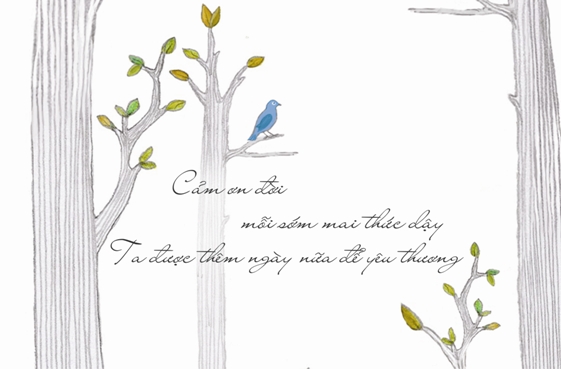 Cảm ơn đời
mỗi sớm mai thức dậy
Ta được thêm ngày nữa để yêu thương